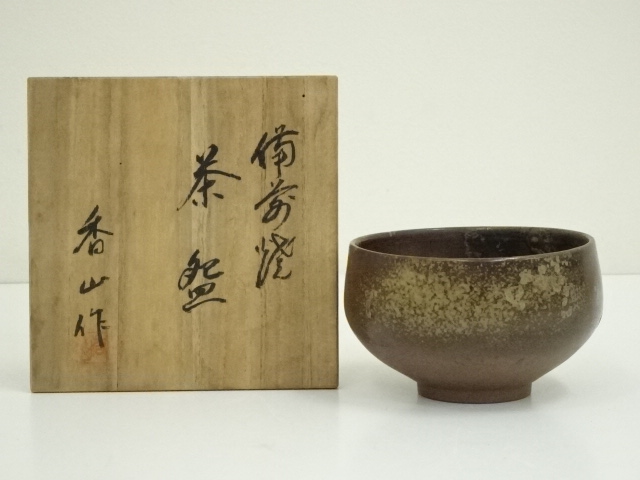 備前焼
茶盌
香山作